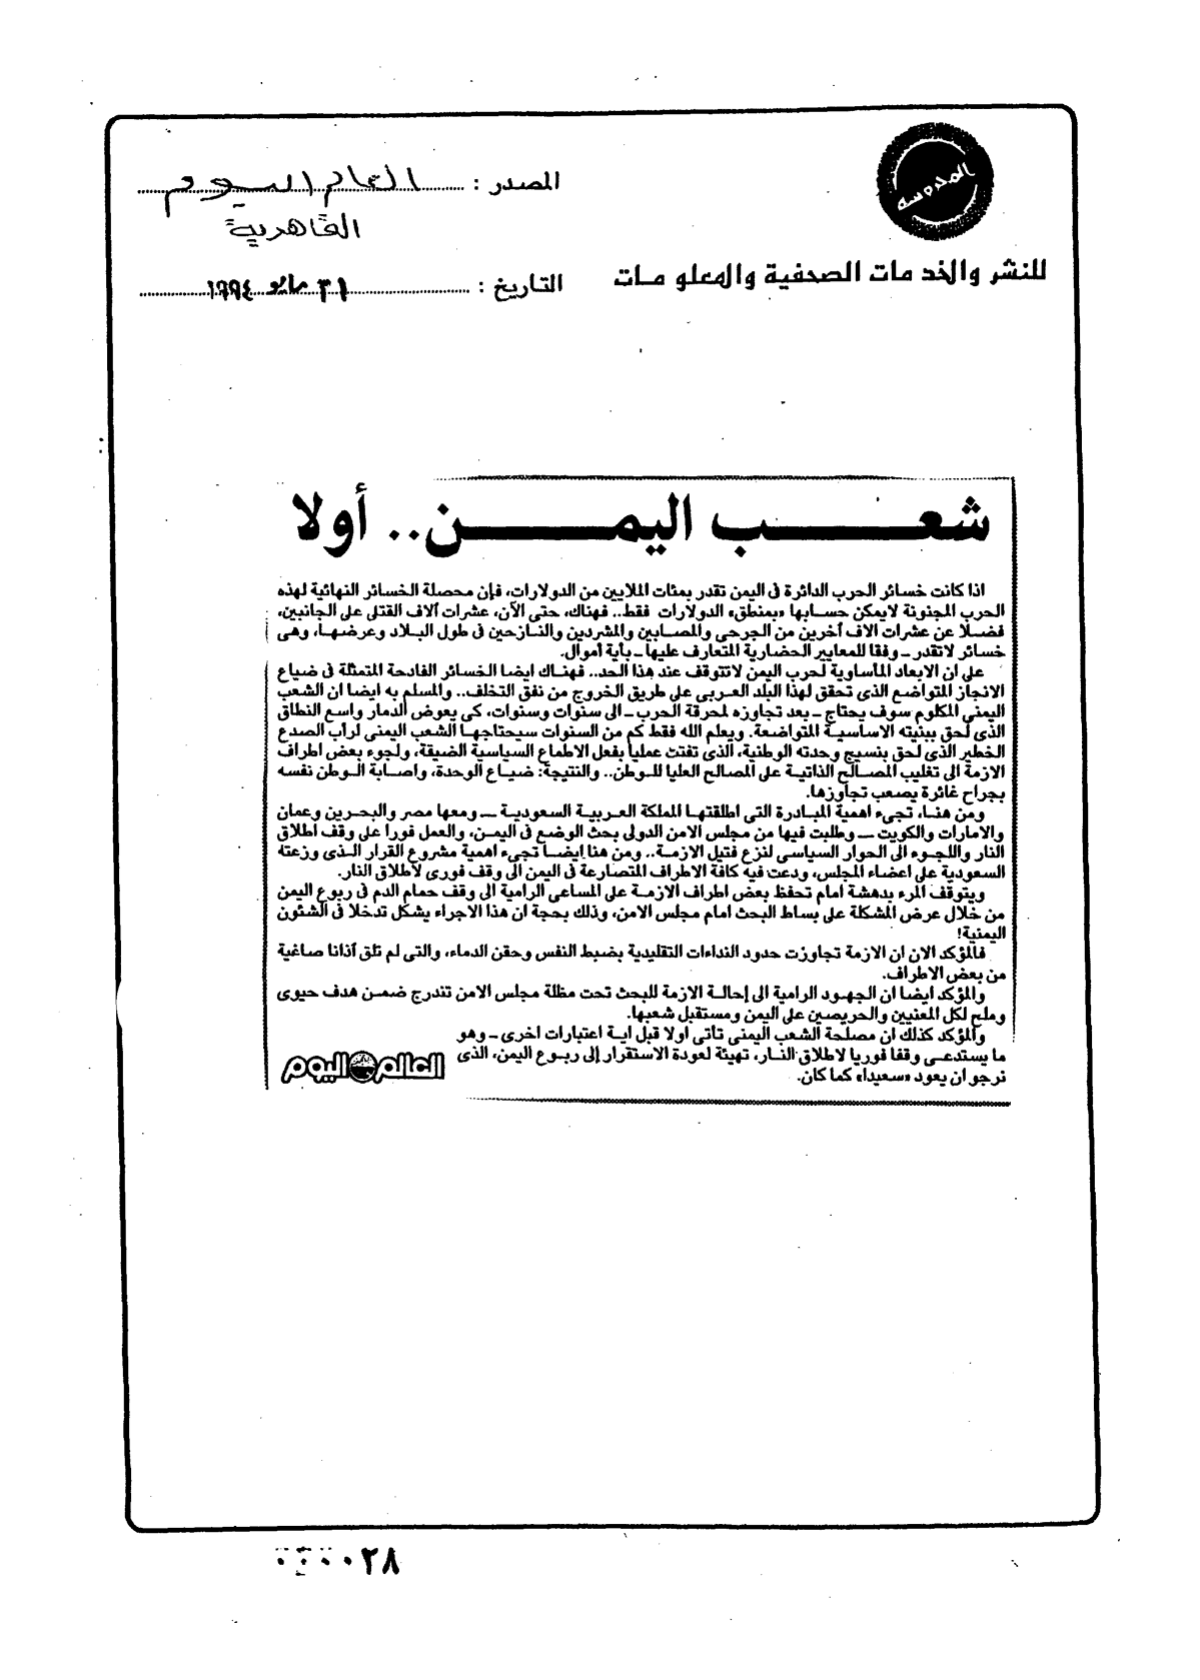 المدوسة
المصدر : العالم اليوم
القاهرية
للنشر والخدمات الصحفية والمعلومات
التاريخ : ٣١ مايو ١٩٩٤
شعب اليمن.. أولا
اذا كانت خسائر الحرب الدائرة فى اليمن تقدر بمئات الملايين من الدولارات، فإن محصلة الخسائر النهائية لهذه
الحرب المجنونة لايمكن حسابها «بمنطق» الدولارات فقط.. فهناك، حتى الآن، عشرات آلاف القتلى على الجانبين،
فضلا عن عشرات الاف آخرين من الجرحى والمصابين والمشردين والنازحين فى طول البلاد وعرضها، وهى
خسائر لاتقدر ــ وفقا للمعايير الحضارية المتعارف عليها ــ بأية أموال.
على ان الابعاد المأساوية لحرب اليمن لاتتوقف عند هذا الحد.. فهناك ايضا الخسائر الفادحة المتمثلة فى ضياع
الانجاز المتواضع الذى تحقق لهذا البلد العربى على طريق الخروج من نفق التخلف.. والمسلم به ايضا ان الشعب
اليمنى المكلوم سوف يحتاج ــ بعد تجاوزه لمحرقة الحرب ــ الى سنوات وسنوات، كى يعوض الدمار واسع النطاق
الذى لحق ببنيته الاساسية المتواضعة. ويعلم الله فقط كم من السنوات سيحتاجها الشعب اليمنى لرأب الصدع
الخطير الذى لحق بنسيج وحدته الوطنية، الذى تفتت عمليا بفعل الاطماع السياسية الضيقة، ولجوء بعض اطراف
الازمة الى تغليب المصالح الذاتية على المصالح العليا للوطن.. والنتيجة: ضياع الوحدة، واصابة الوطن نفسه
بجراح غائرة يصعب تجاوزها.
ومن هنا، تجىء اهمية المبادرة التى اطلقتها المملكة العربية السعودية ــ ومعها مصر والبحرين وعمان
والامارات والكويت ــ وطلبت فيها من مجلس الامن الدولى بحث الوضع فى اليمن، والعمل فورا على وقف اطلاق
النار واللجوء الى الحوار السياسى لنزع فتيل الازمة.. ومن هنا ايضا تجىء اهمية مشروع القرار الذى وزعته
السعودية على اعضاء المجلس، ودعت فيه كافة الاطراف المتصارعة فى اليمن الى وقف فورى لاطلاق النار.
ويتوقف المرء بدهشة امام تحفظ بعض اطراف الازمة على المساعى الرامية الى وقف حمام الدم فى ربوع اليمن
من خلال عرض المشكلة على بساط البحث امام مجلس الامن، وذلك بحجة ان هذا الاجراء يشكل تدخلا فى الشئون
اليمنية!
فالمؤكد الان ان الازمة تجاوزت حدود النداءات التقليدية بضبط النفس وحقن الدماء، والتى لم تلق آذانا صاغية
من بعض الاطراف.
والمؤكد ايضا ان الجهود الرامية الى إحالة الازمة للبحث تحت مظلة مجلس الامن تندرج ضمن هدف حيوى
وملح لكل المعنيين والحريصين على اليمن ومستقبل شعبها.
والمؤكد كذلك ان مصلحة الشعب اليمنى تأتى اولا قبل اية اعتبارات اخرى ــ وهو
ما يستدعى وقفا فوريا لاطلاق النار، تهيئة لعودة الاستقرار إلى ربوع اليمن، الذى
نرجو ان يعود «سعيدا» كما كان.
العالم اليوم
٠٠٠٠٢٨